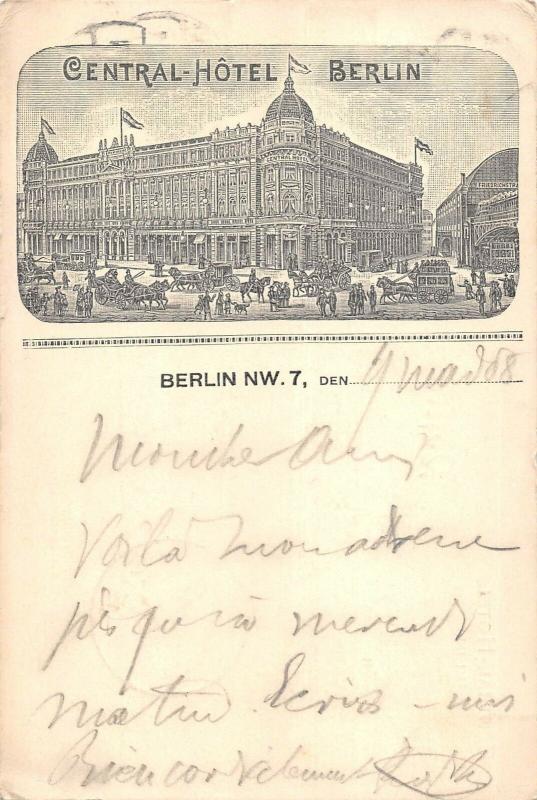 CENTRAL-HÔTEL BERLIN
CENTRAL HOTEL
FRIEDRICHSTR
BERLIN NW. 7, DEN 9 08
Moncher Ami
Voilà mon adresse
jusqu'à mercredi
matin. Ecris-moi
Bien cordialement